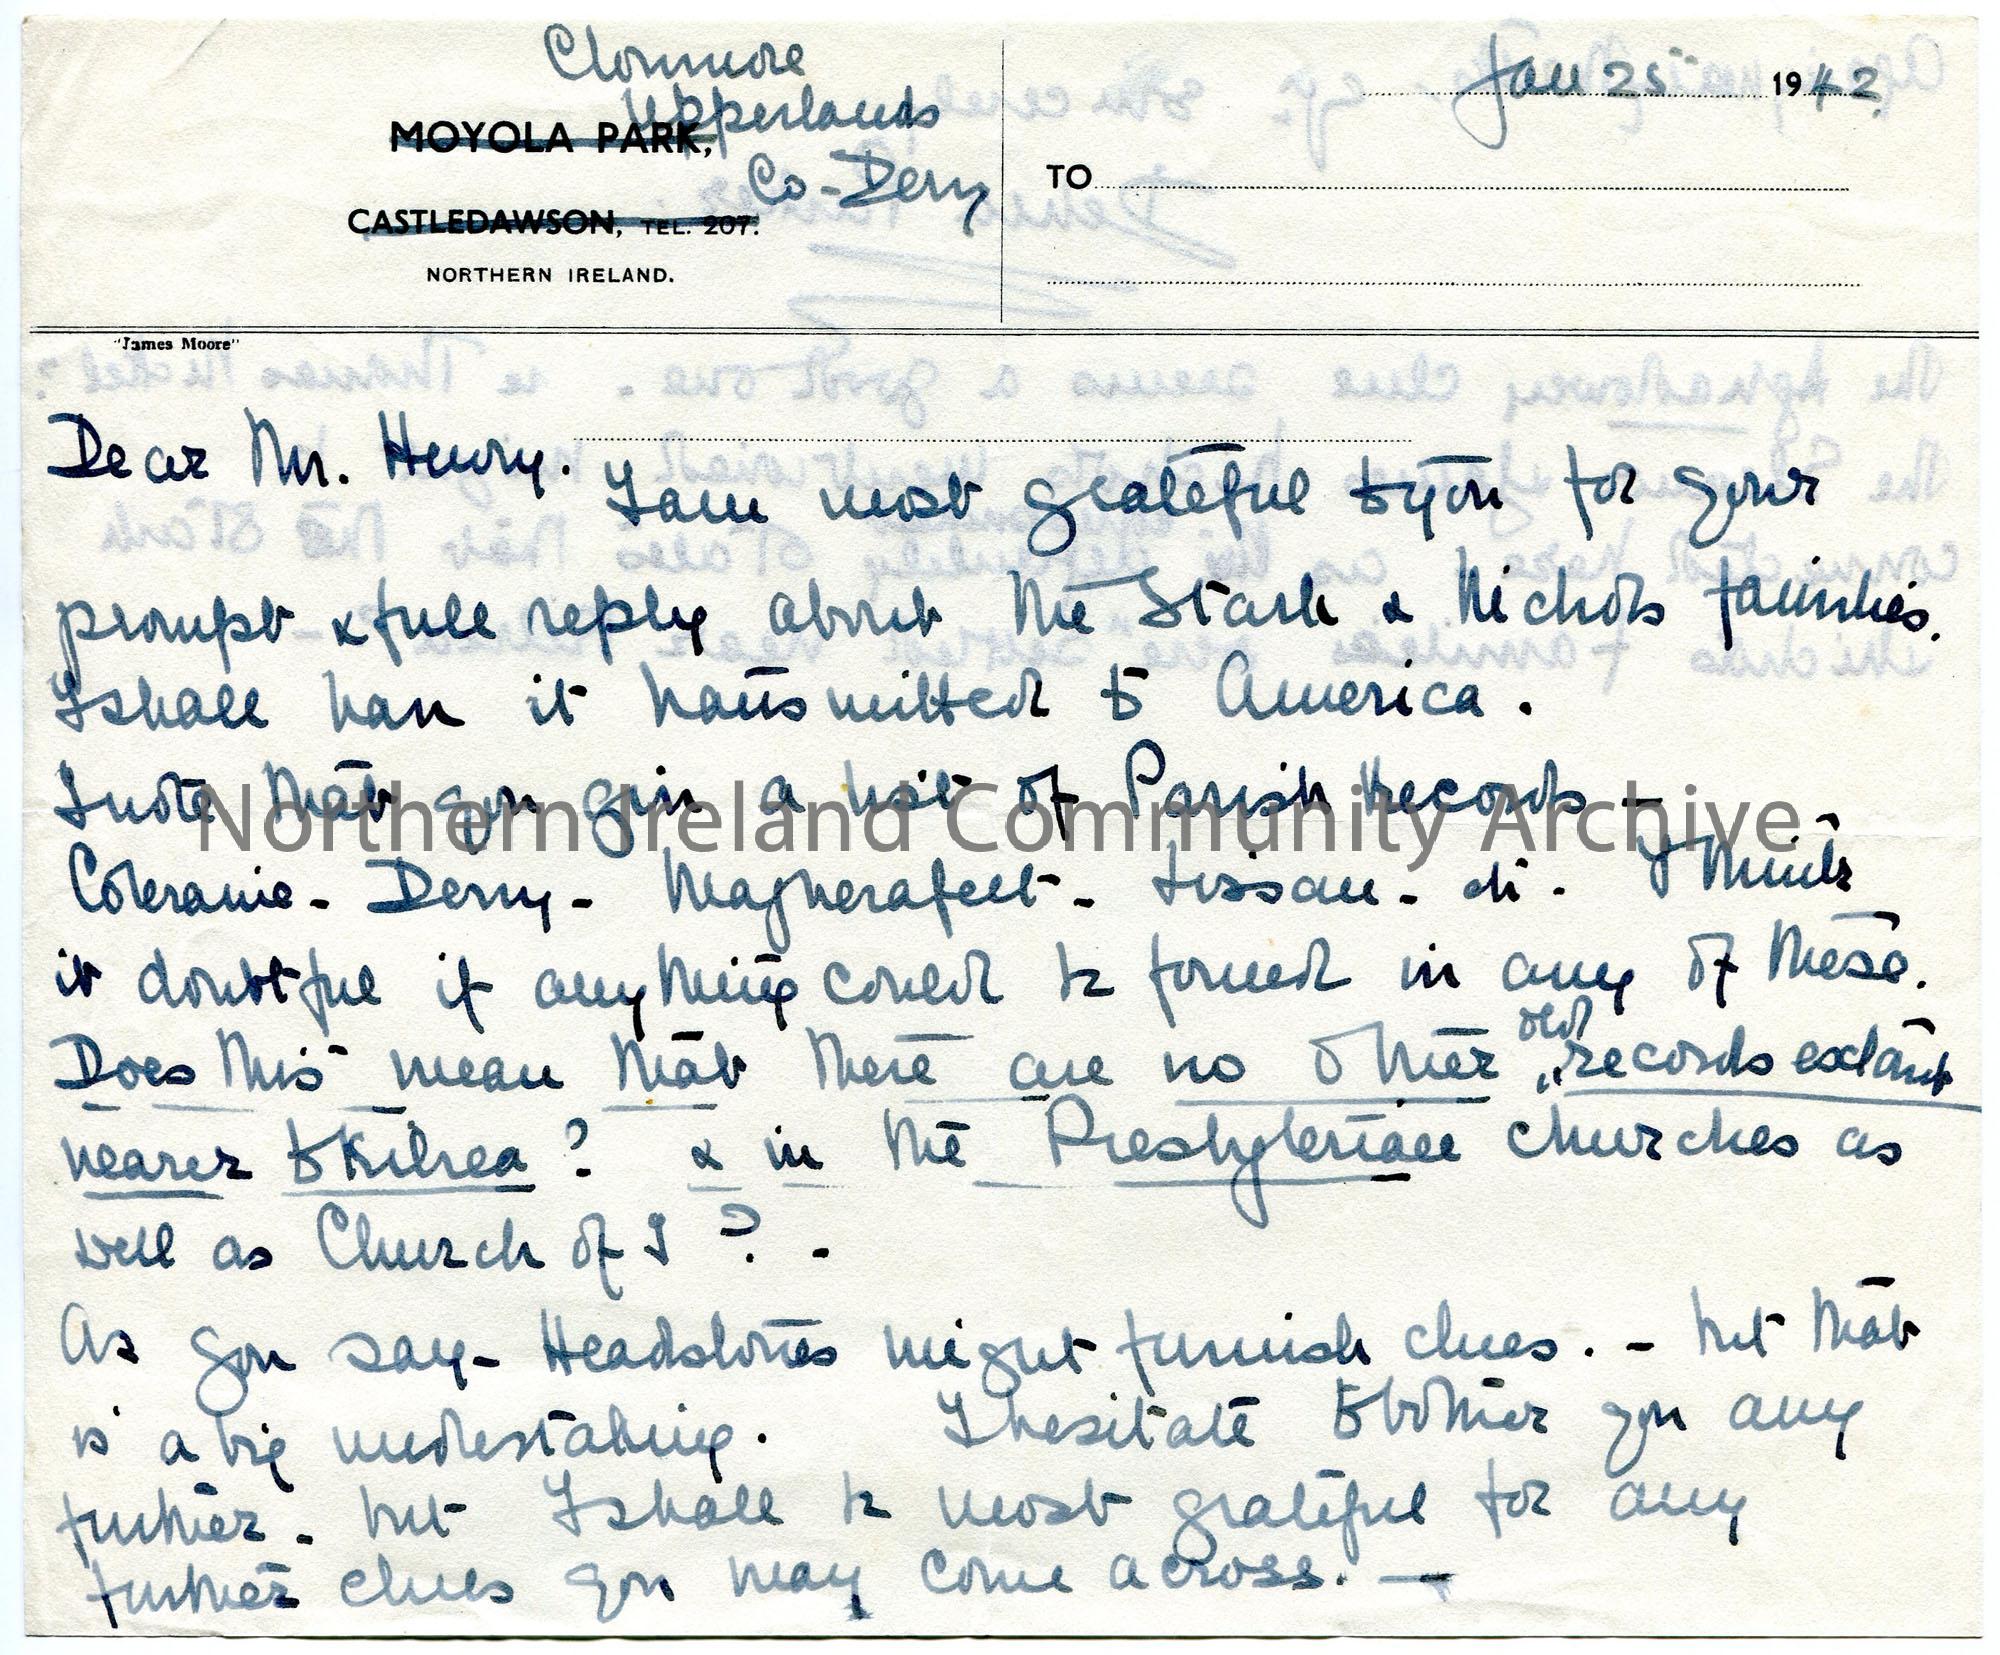 Clonmore
Upperlands
Co-Derry
MOYOLA PARK,
CASTLEDAWSON, TEL. 207.
NORTHERN IRELAND.
Jan 25 1942
TO
"James Moore"
Dear Mr. Henry.
I am most grateful to you for your
prompt & full reply about the Stark & Nichols families.
I shall have it transmitted to America.
I note that you give a list of Parish Records -
Coleraine - Derry - Magherafelt - Lissan - etc. I think
it doubtful if anything could be found in any of these.
Does this mean that there are no other old records extant
nearer to Kilrea? & in the Presbyterian churches as
well as Church of I ? -
As you say - Headstones might furnish clues. - but that
is a big undertaking. I hesitate to bother you any
further - but I shall be most grateful for any
further clues you may come across. -
Northern Ireland Community Archive